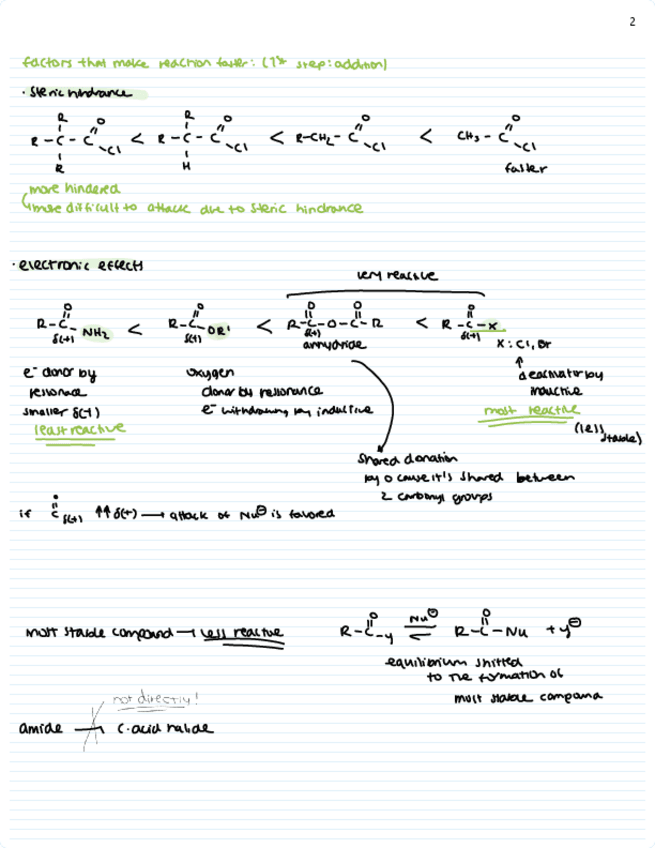 2
factors that make reaction faster: (1st step: addition)
· Steric hindrance
R R
R - C - C O Cl < R - C - C O Cl < R-CH₂ - C O Cl < CH₃ - C O Cl
R H
faster
more hindered
more difficult to attack due to steric hindrance
· electronic effects
very reactive
R - C O NH₂ < R - C O OR' < R - C O - O - C O - R < R - C O - X
δ(+) δ(+) δ(+) δ(+)
anhydride
X : Cl, Br
e⁻ donor by
resonance
smaller δ(+)
least reactive
oxygen
donor by resonance
e⁻ withdrawing by inductive
deactivator by
inductive
most reactive
(less stable)
shared donation
by O cause it's shared between
2 carbonyl groups
if C δ(+) ↑↑ δ(+) → attack of Nu⊖ is favored
most stable compound → less reactive
R - C O - y Nu⊖ ⇌ R - C O - Nu + y⊖
equilibrium shifted
to the formation of
most stable compound
not directly!
amide → c. acid halide